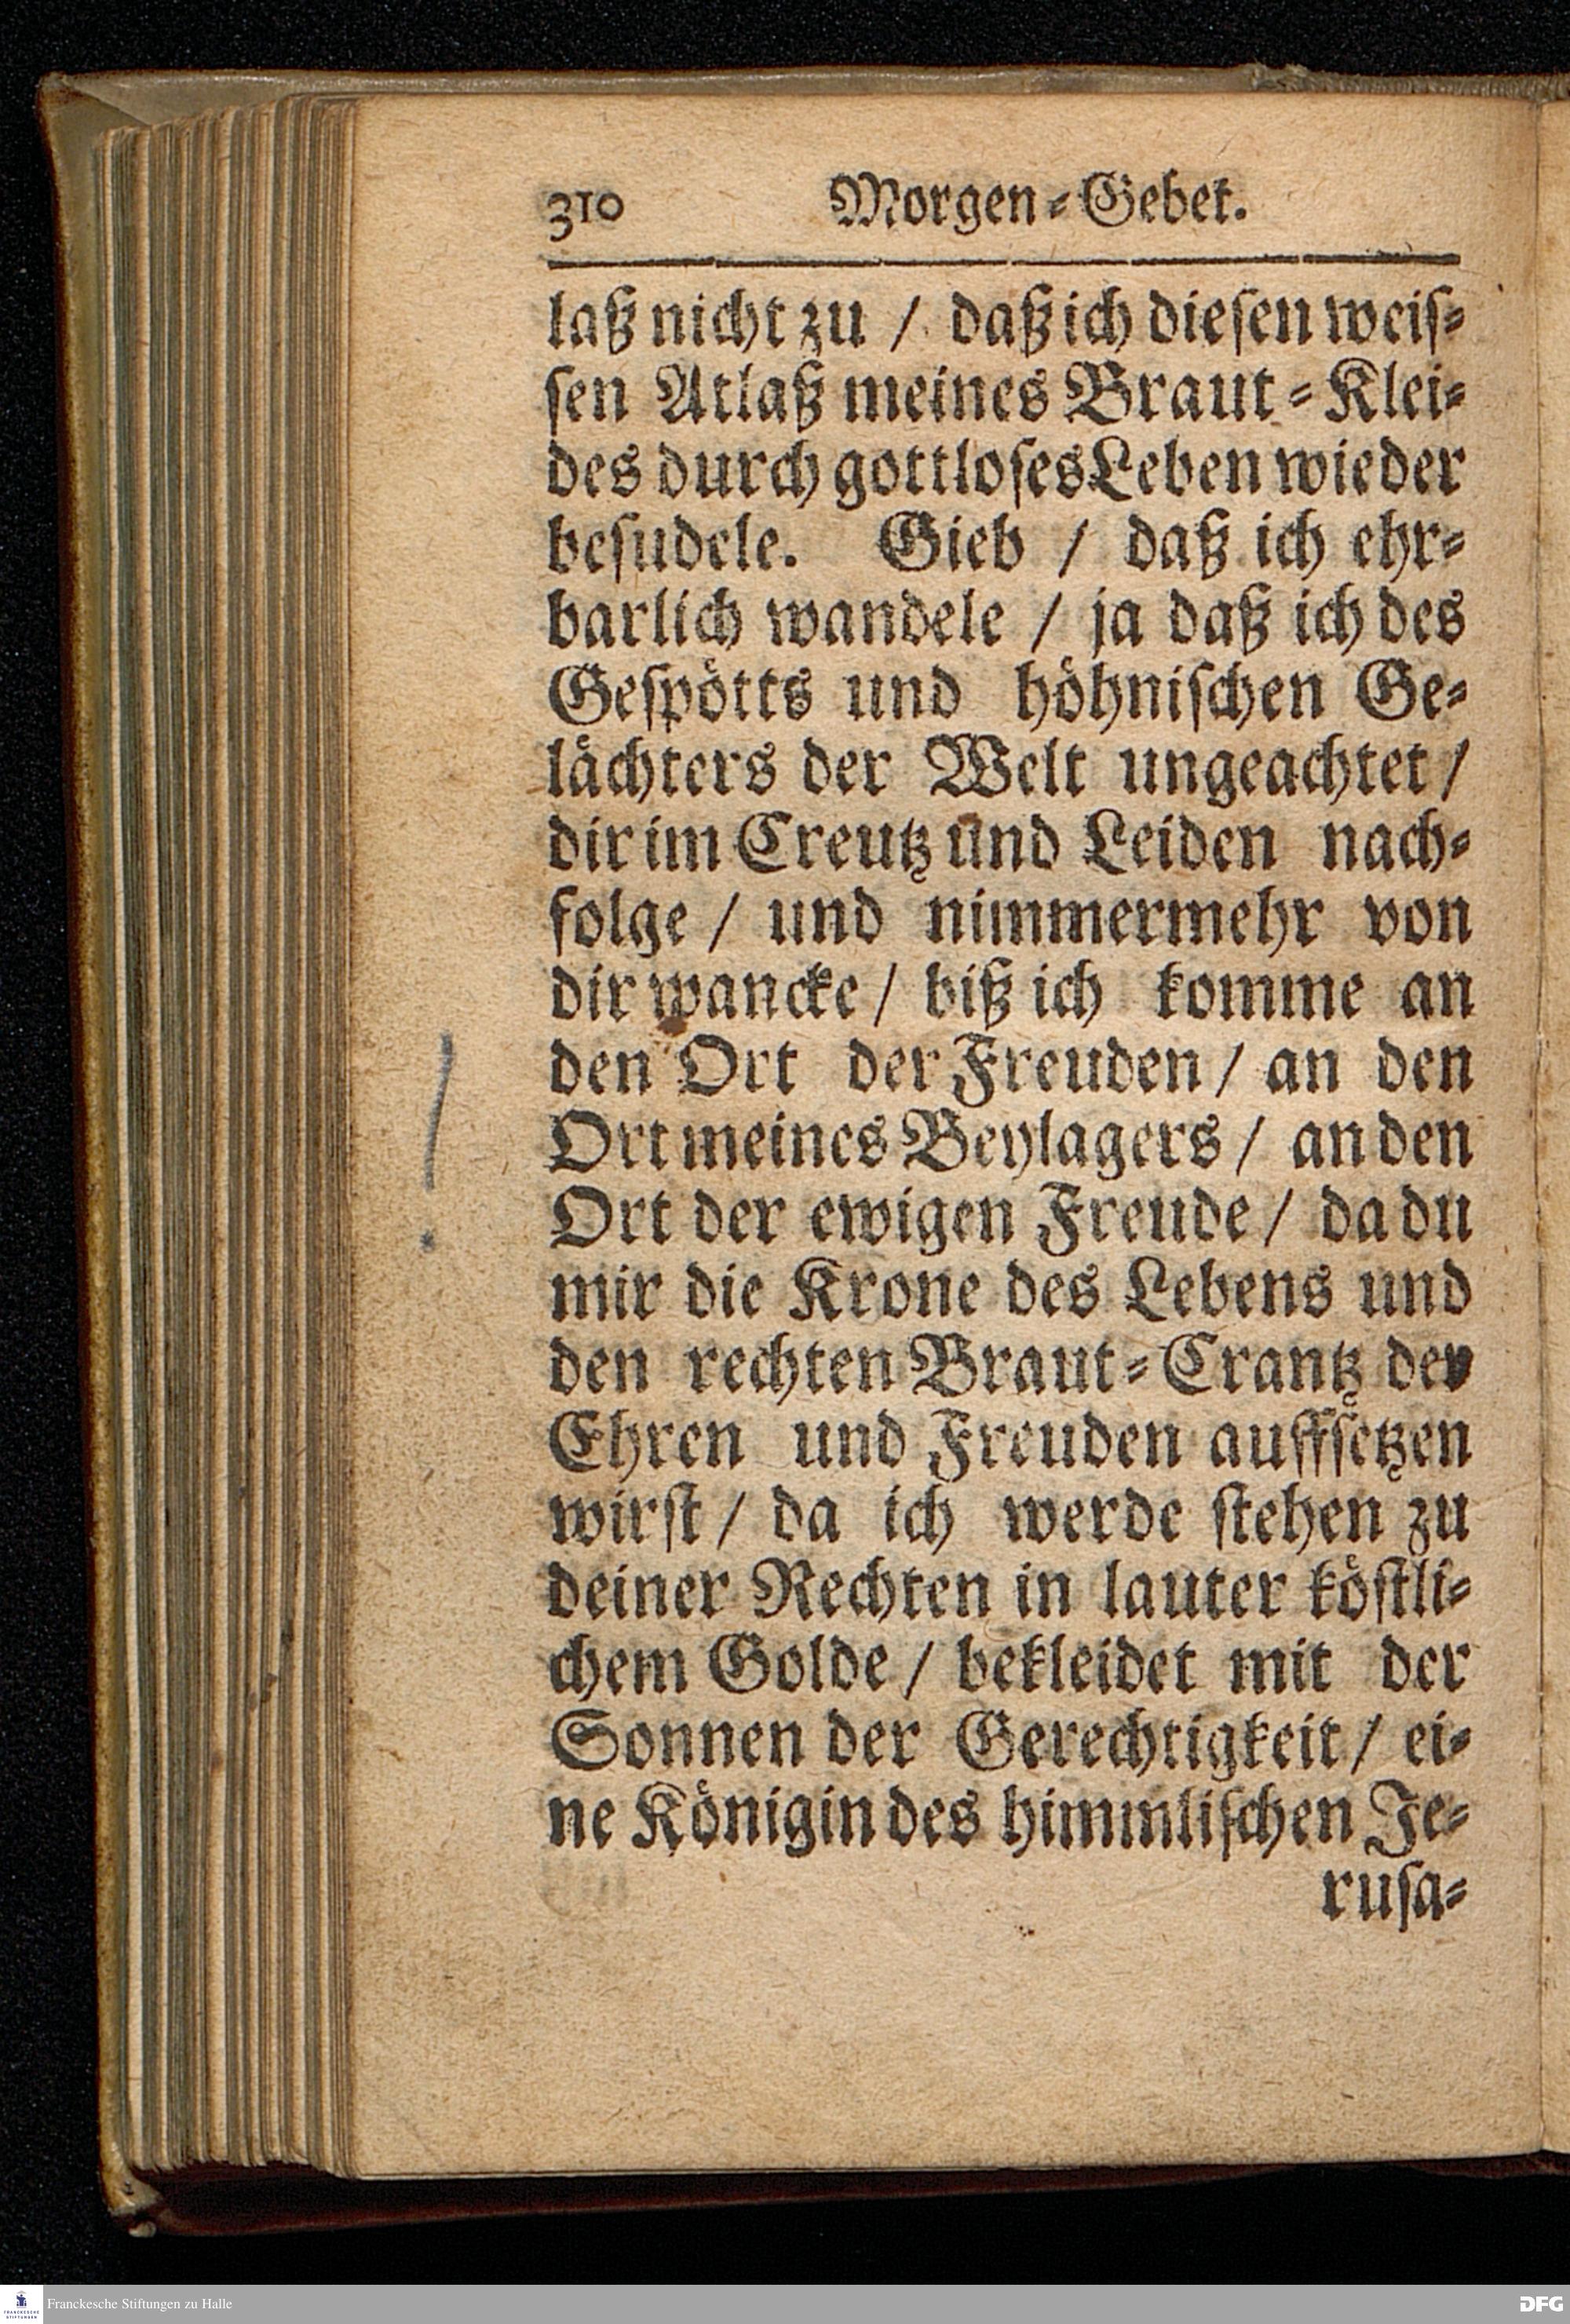 310 Morgen-Gebet.
laß nicht zu / daß ich diesen weis-
sen Atlaß meines Braut-Klei-
des durch gottloses Leben wieder
besudele. Gieb / daß ich ehr-
barlich wandele / ja daß ich des
Gespötts und höhnischen Ge-
lächters der Welt ungeachtet /
dir im Creutz und Leiden nach-
folge / und nimmermehr von
dir wancke / biß ich komme an
den Ort der Freuden / an den
Ort meines Beylagers / an den
Ort der ewigen Freude / da du
mir die Krone des Lebens und
den rechten Braut-Crantz der
Ehren und Freuden auffsetzen
wirst / da ich werde stehen zu
deiner Rechten in lauter köstli-
chem Golde / bekleidet mit der
Sonnen der Gerechtigkeit / ei-
ne Königin des himmlischen Je-
rusa-
FRANCKESCHE STIFTUNGEN
Franckesche Stiftungen zu Halle
DFG